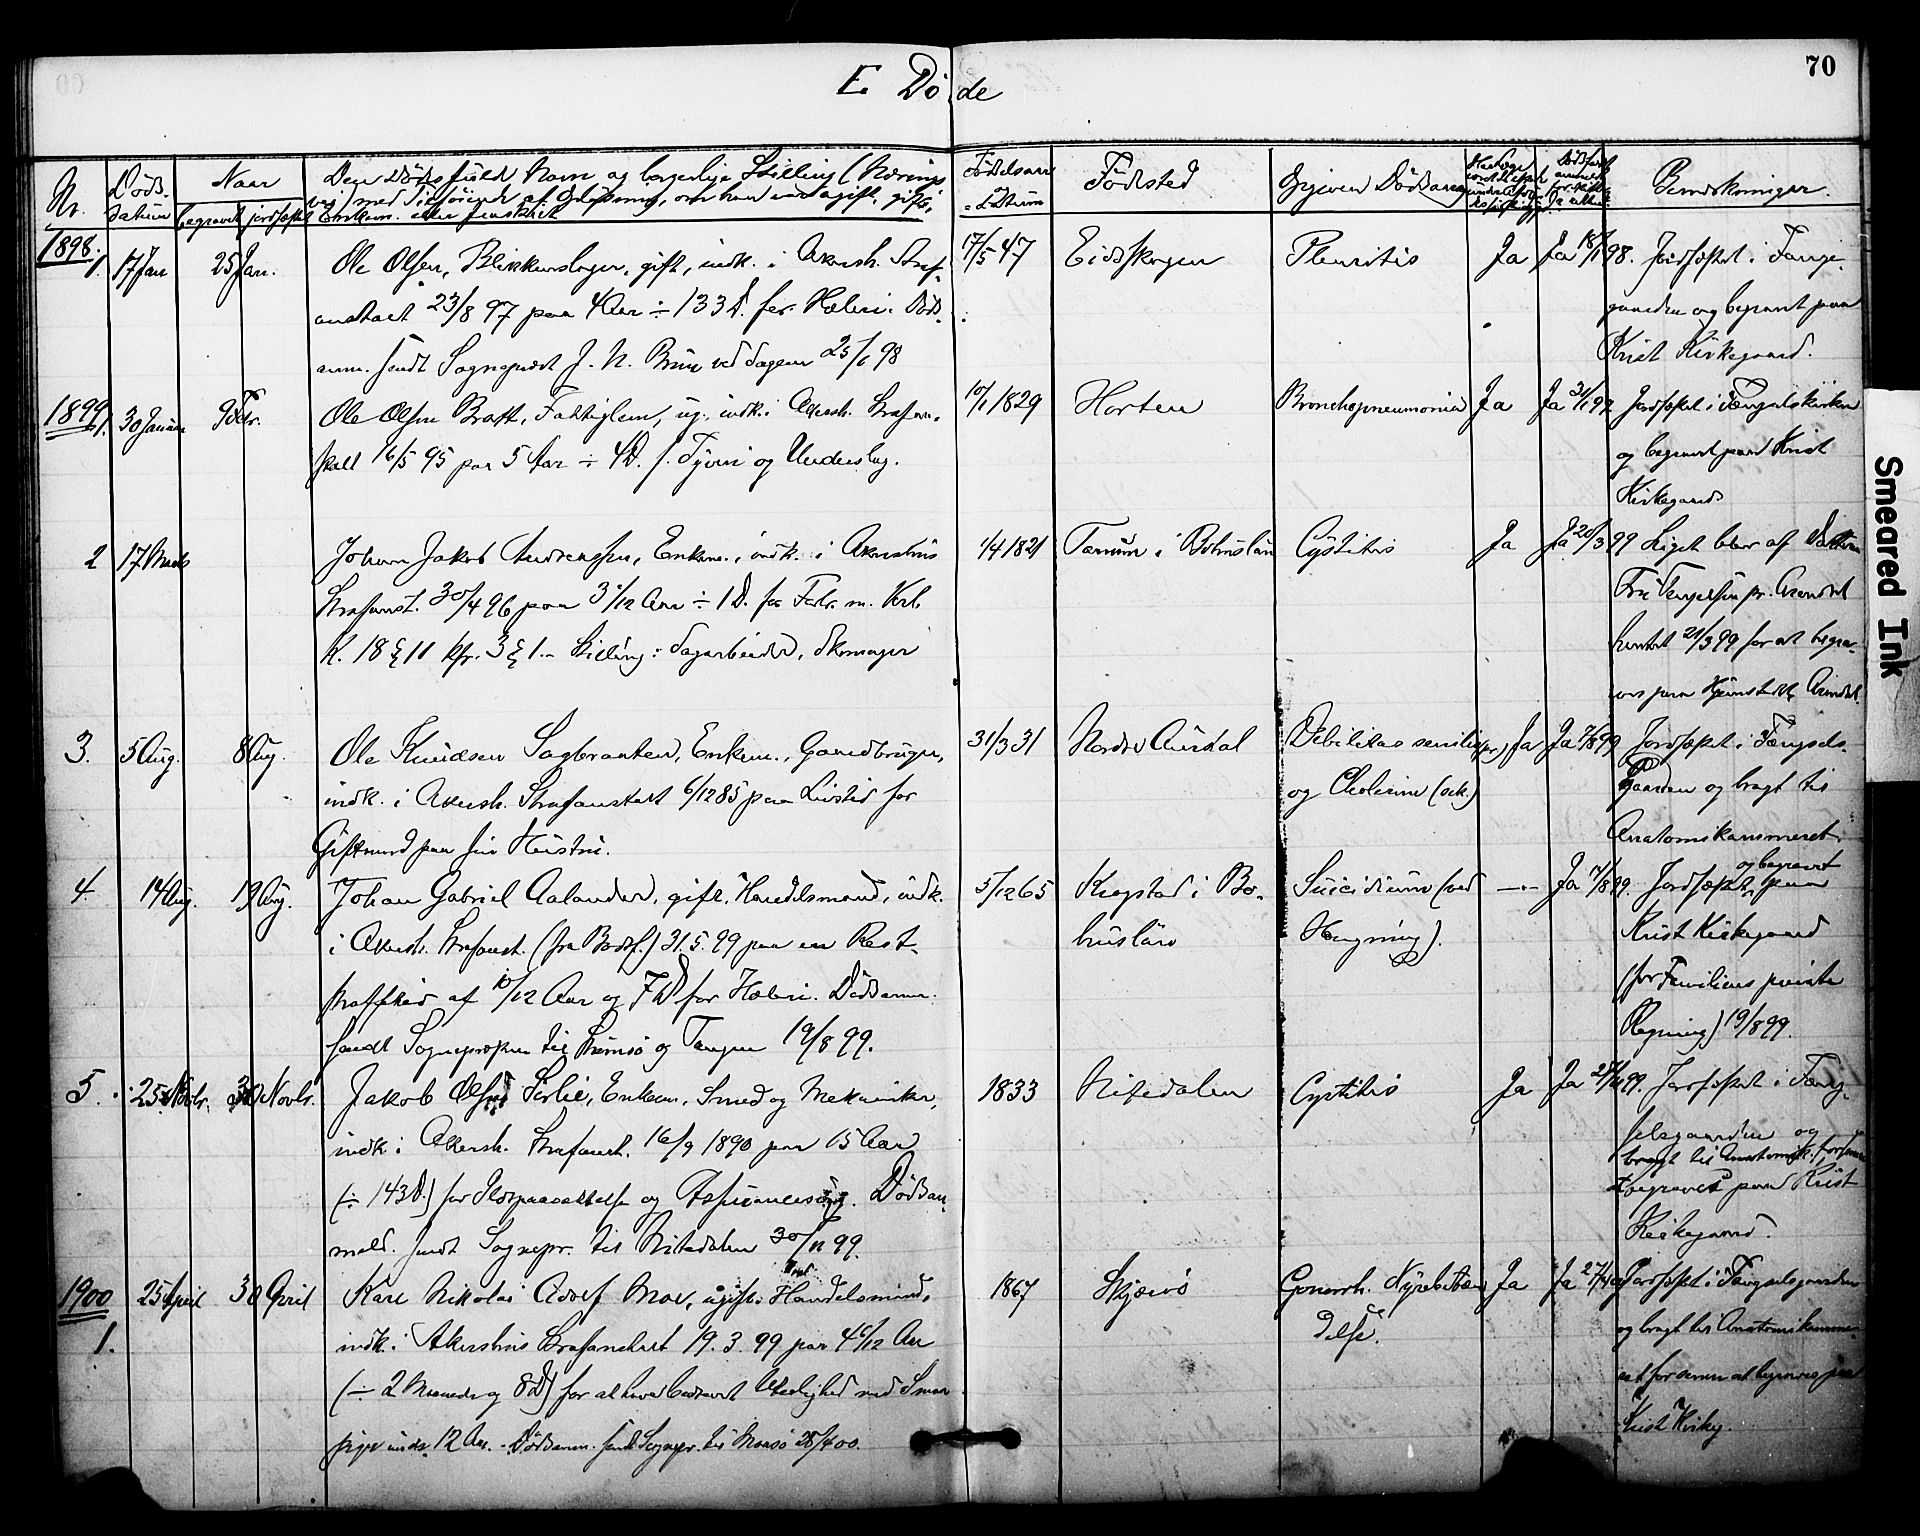 70
E. Døde
Nr.
Døds-
datum
Naar
begravet jordfæstet
Den Dødes fulde Navn og borgerlige Stilling (Nærings
vei) med Tilføiende af Oplysning, om han var ugift, gift,
Enkem. eller fraskilt
Fødselsaar
Datum
Fødested
Opgiven Dødsaarsag
Bemærkninger.
1898.
1. 17 Jan 25 Jan. Ole Olsen, Blikkenslager, gift, indk. i Akersh. Straf- 17/5 47 Eidskogen Pleuritis Ja Ja 18/1 98. Jordfæstet i Fange-
anstalt 23/8 97 paa 4 Aar ÷ 133 D. for Hæleri. Døds- gaarden og begravet paa
anm. sendt Sogneprest J. N. Brun ved Dagen 25/1 98 Krist Kirkegaard.
1899.
1. 30 Januar 9 Febr. Ole Olsen Bratt, Fattiglem, ug. indk. i Akersh. Strafan- 10/1 1829 Horten Bronchopneumonia Ja Ja 31/1 99 Jordfæstet i Fængselskirken
stalt 16/5 95 paa 5 Aar ÷ 4 D. f. Tyveri og Underslag. og begravet paa Krist
Kirkegaard
2 17 Marts Johan Jakob Andreassen, Enkem., indk. i Akershus 1/4 1821 Tanum i Bohuslän Cystitis Ja Ja 20/3 99 Liget blev af Datteren
Strafanst. 30/4 96 paa 3 /12 Aar ÷ 1 D. for Forbr. m. Krl. Fru pr. Arendal
K. 18 § 11 kfr. 3 § 1. - Stilling: Dagarbeider, Skomager hentet 21/3 99 for at begra-
ves paa Hjemstedet, Arendal.
3. 5 Aug. 8 Aug. Ole Knudsen Sagbraaten, Enkem., Gaardbruger, 31/3 31 Nordre Aurdal Debilitas senilis (pr.) Ja Ja 7/8 99 Jordfæstet i Fængsels-
indk. i Akersh. Strafanstalt 6/12 85 paa Livstid for og Cholerine (sek.) Gaarden og bragt til
Giftmord paa sin Hustru. Anatomikammeret.
4. 14 Aug. 19 Aug. Johan Gabriel Aalander, gift, Handelsmand, indk. 5/12 65 Krogstad i Bo- Suicidium (ved -"- Ja 17/8 99. Jordfæstet og begravet paa
i Akersh. Strafanst. (fra Bodsf.) 31.5.99 paa en Rest- huslän Hængning). Krist Kirkegaard
straffetid af 10/12 Aar og 7 D for Hæleri. Dødsanm. (for Familiens private
sendt Sognepresten til Strømsø og Tangen 19/8 99. Regning) 19/8 99.
5. 25 Novbr. 30 Novbr. Jakob Olsen Enkem, Smed og Mekaniker, 1833 Nitedalen Cystitis Ja Ja 27/11 99. Jordfæstet i Fæng-
indk. i Akersh. Strafanst. 16/9 1890 paa 15 Aar selsgaarden og
(÷ 143 D.) for Ildspaasættelse og Assurancesvig. Dødsan- bragt til Anatomik. forsaa
meld. sendt Sognepr. til Nitedalen 30/11 99. at begraves paa Krist
Kirkegaard.
1900
1. 25 April 30 April Karl Nikolai Adolf Moe, ugift, Handelsmand, 1867 Skjærvø Gonorrh. Nyrebetæn- Ja Ja 27/4 00 Jordfæstet i Fængselsgaarden
indk. i Akershus Strafanstalt 19.3.99 paa 4 6/12 Aar delse. og bragt til Anatomikamme-
(÷ 2 Maaneder og 8 D) for at have bedrevet Uterlighed med Smaa- ret for senere at begraves paa
piger under 12 Aar. - Dødsanm. sendt Sognepr. til 28/4 00. Krist Kirkeg.
Smeared Ink